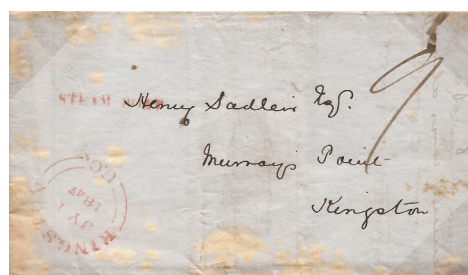 STEAM
Henry Sadleir Esq.
Murray's Point
Kingston
9
KINGSTON U.C.
JY 1
1847